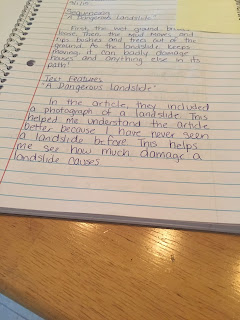 Sequencing
"A Dangerous Landslide"
First, the wet ground breaks
loose. Then, the mud moves and
rips bushes and trees out of the
ground. As the landslide keeps
moving, it can badly damage
houses and anything else in its
path!
Text Features
"A Dangerous Landslide"
In the article, they included
a photograph of a landslide. This
helped me understand the article
better because I have never seen
a landslide before. This helps
me see how much damage a
landslide causes.